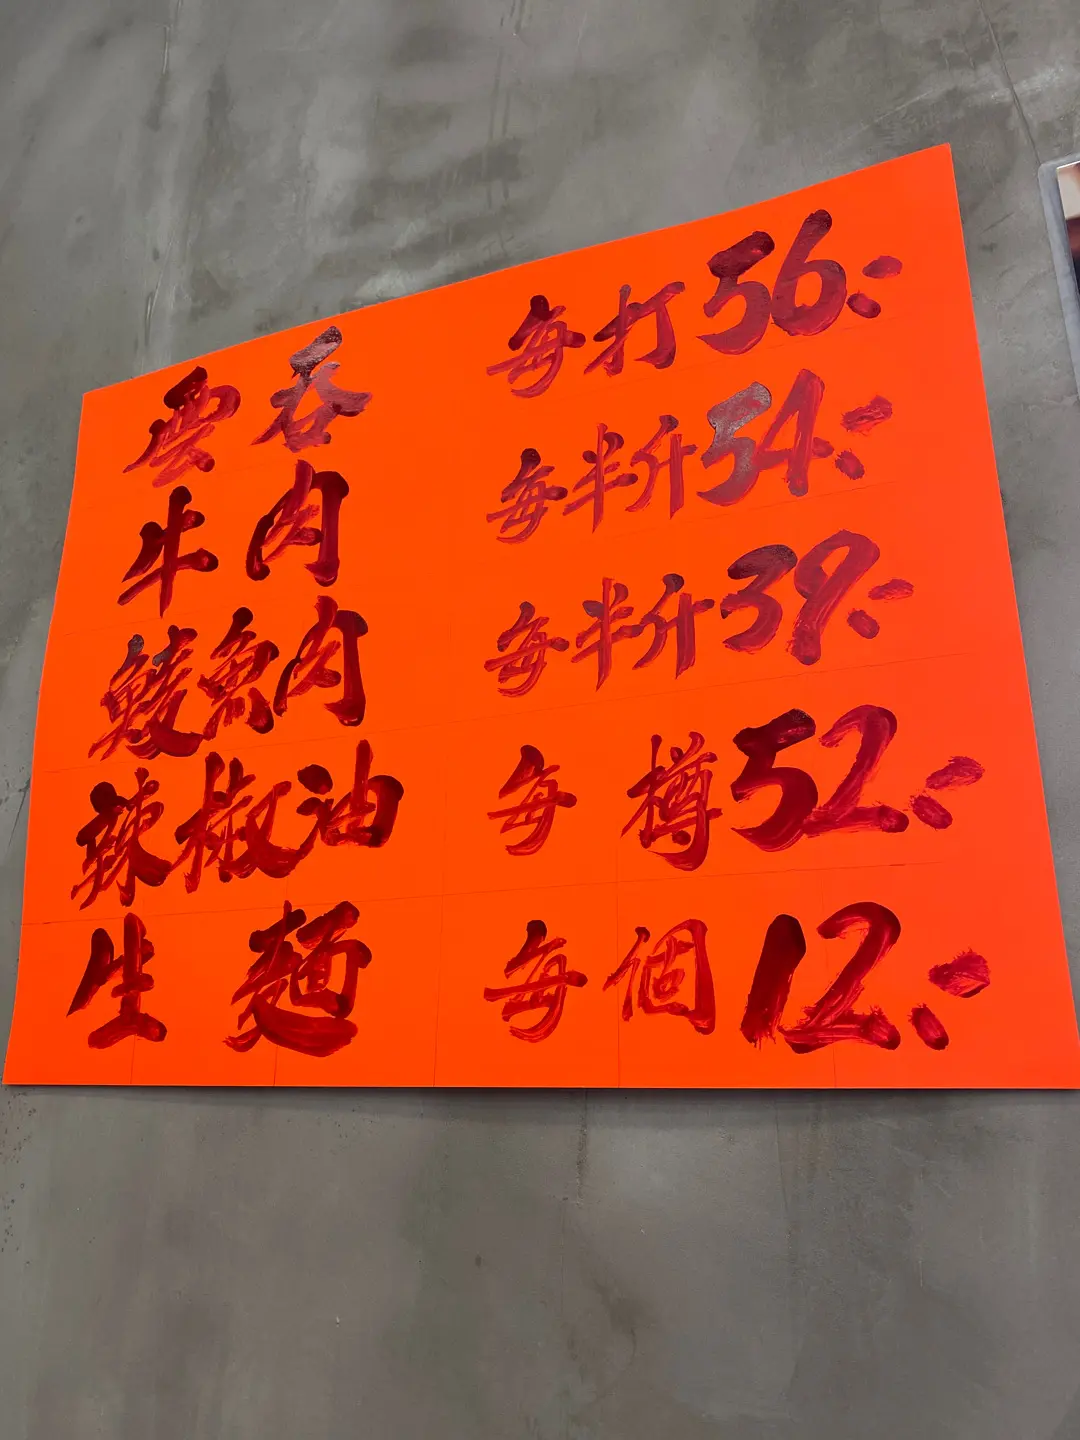 雲吞 每打 56.-
牛肉 每半斤 54.-
鯪魚肉 每半斤 39.-
辣椒油 每樽 52.-
生麵 每個 12.-